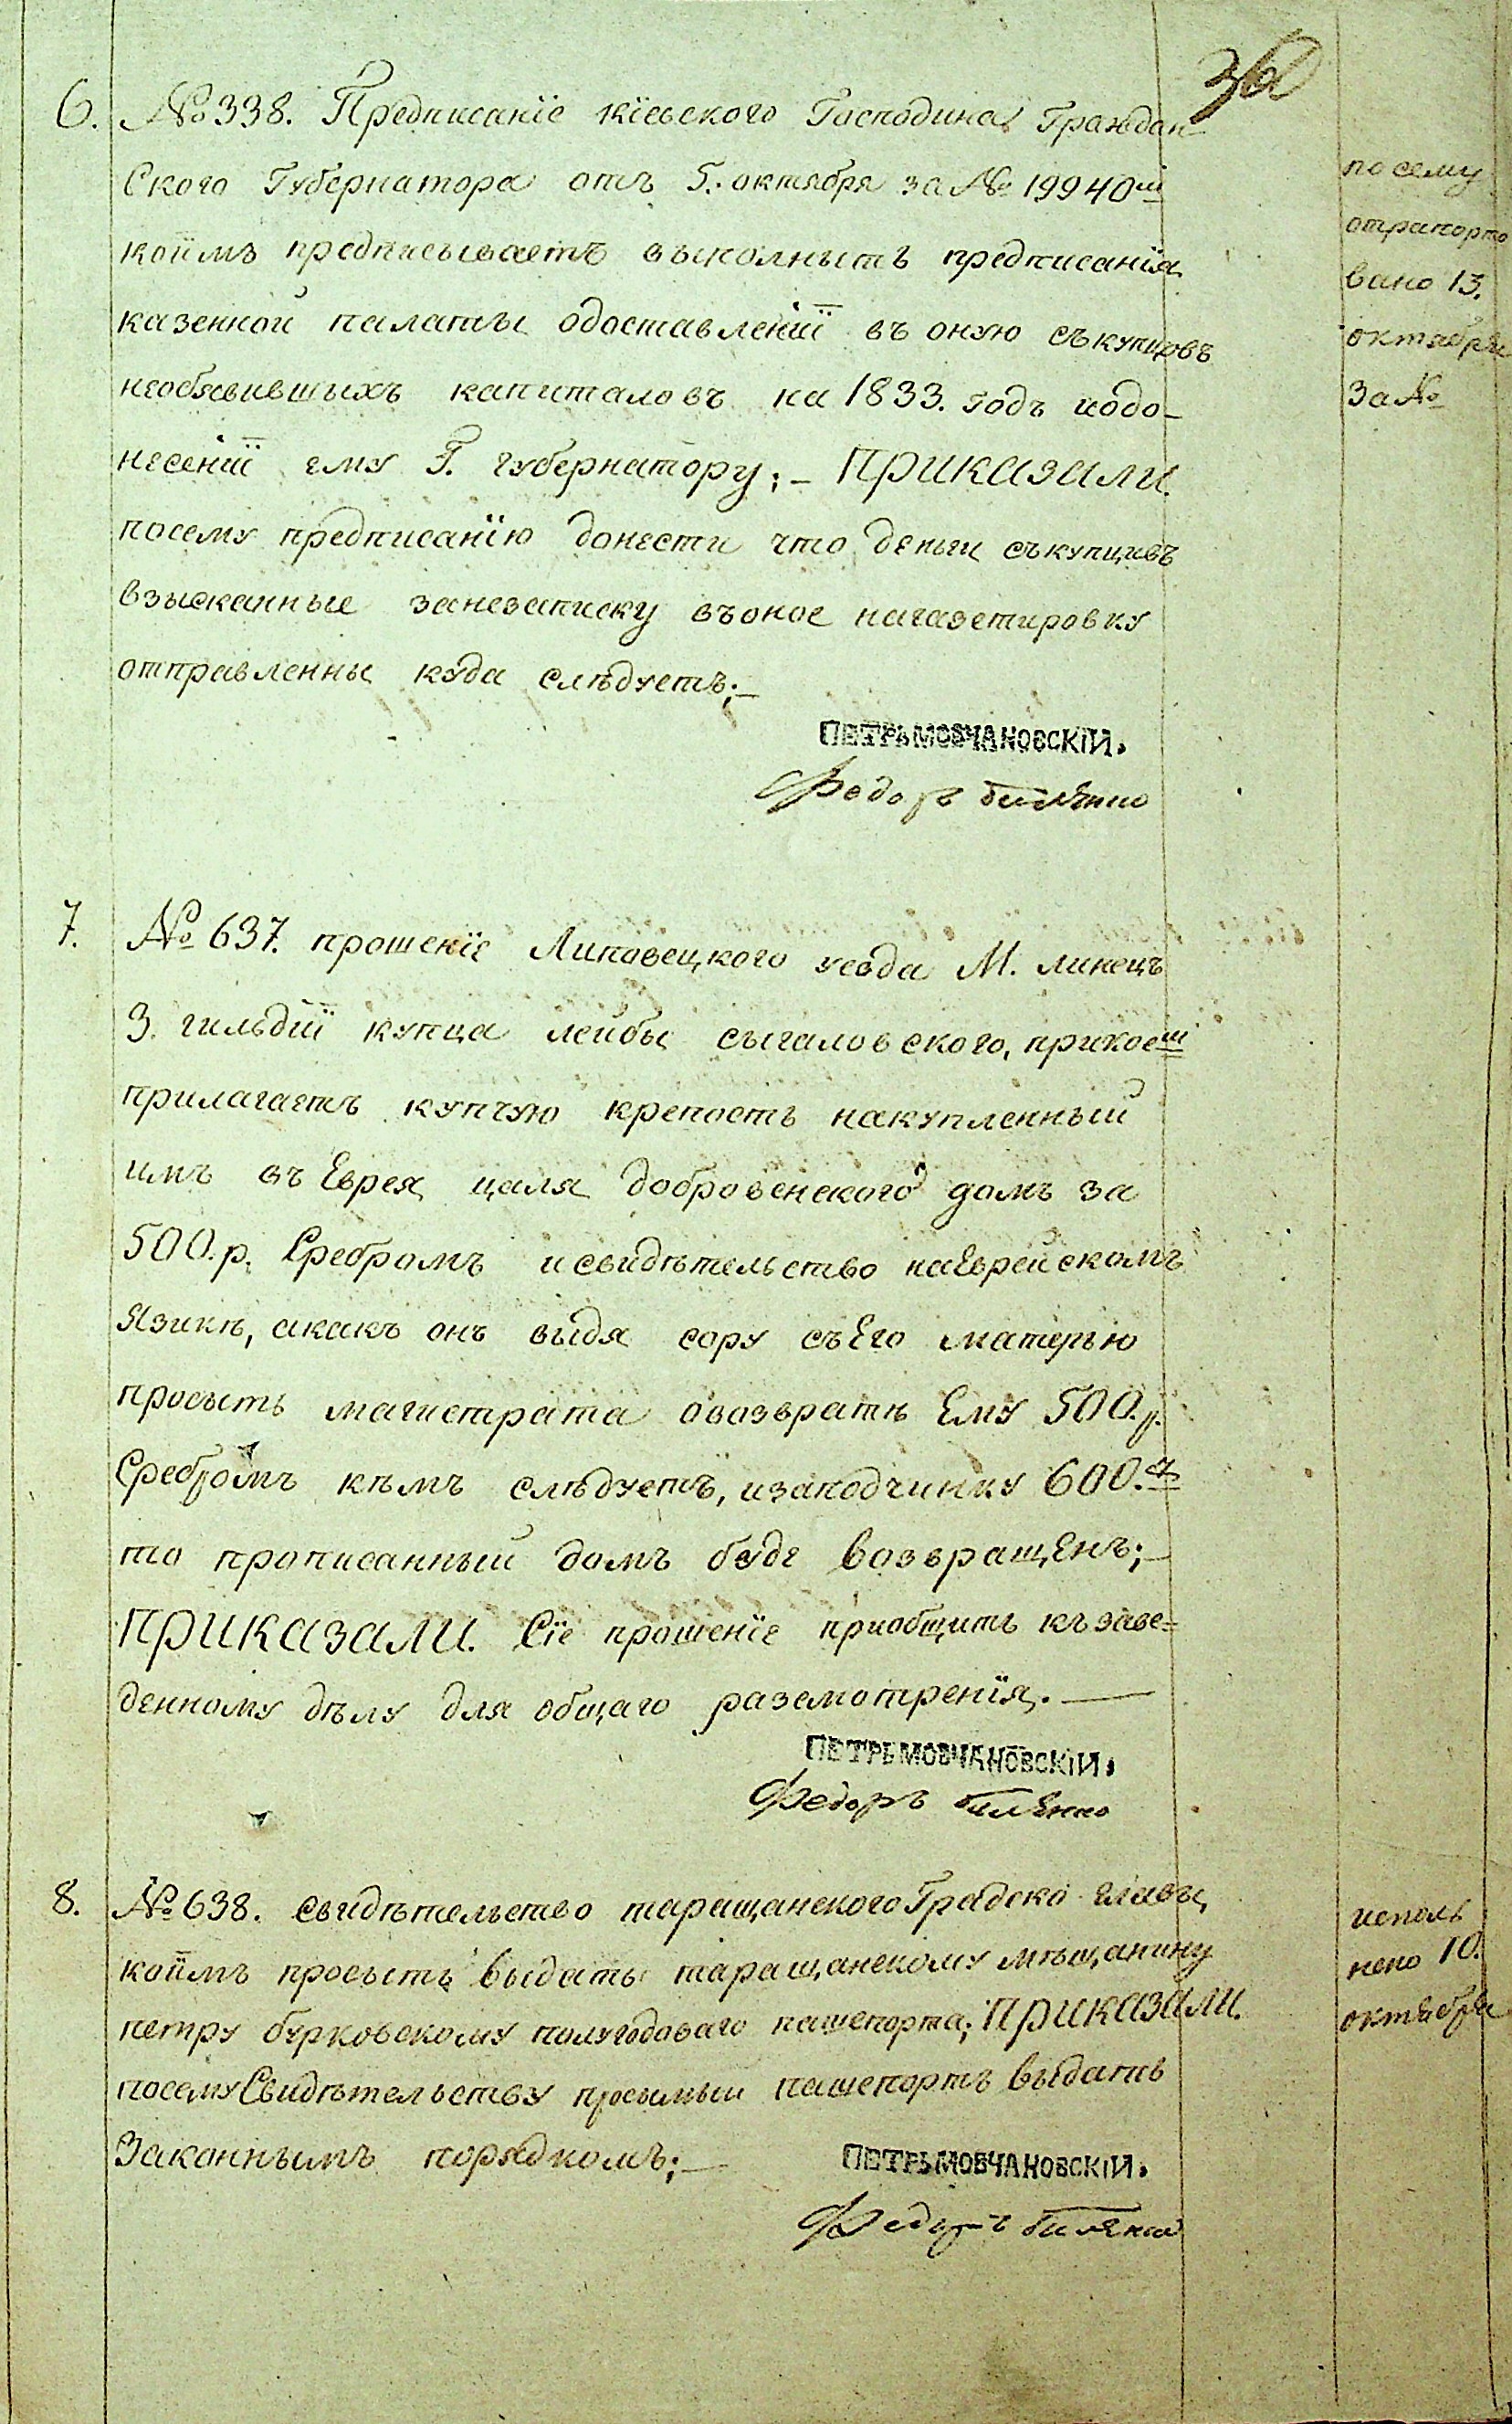 36
6. № 338. Предписаніе кіевского Господина Граждан-
Ского Губернатора отъ 5. октября за № 19940м
коимъ предписываетъ выполныть предписанія
казенной палаты одоставленіи въ оную съкупцовъ
необявившыхъ капиталовъ на 1833. годъ идо-
несеніи ему Г. губернатору; – Приказали.
посему предписанію донести что деньги съкупцивъ
взысканные занезаписку въоное нагазетировку
отправленны куда слѣдуетъ; –
посему
отрапорто
вано 13.
октября
За №
ПЕТРЪ МОВЧАНОВСКІЙ.
Федоръ билѣнко
7. № 637. прошеніе Липовецкого уезда М. линецъ
3. гильдіи купца лейбы сыгаловского, прикоем
прилагаетъ купчую крепость накупленный
имъ въ Еврея цаля добровенского домъ за
500. р. Сребромъ исвидѣтельство наЕврейскомъ
Языкѣ, акакъ онъ выдя сору съЕго матерью
просыть магистрата овозвратѣ Ему 500. р.
Сребромъ кѣмъ слѣдуетъ, изаподчинку 600.
то прописанный домъ буде возвращЕнъ; –
Приказали. Сіе прошеніе приобщить къ заве=
денному дѣлу для общаго разсмотренія. —
ПЕТРЪ МОВЧАНОВСКІЙ.
Федоръ билѣнко
8. № 638. свидѣтельство таращанского Градско главы,
коимъ просыть выдать таращанскому мѣщанину
петру бурковскому полугодоваго пашепорта; Приказали.
посему Свидѣтельству просымый пашепортъ выдать
Законнымъ порядкомъ; –
исполь
нено 10.
октября
ПЕТРЪ МОВЧАНОВСКІЙ.
Федоръ билѣнко